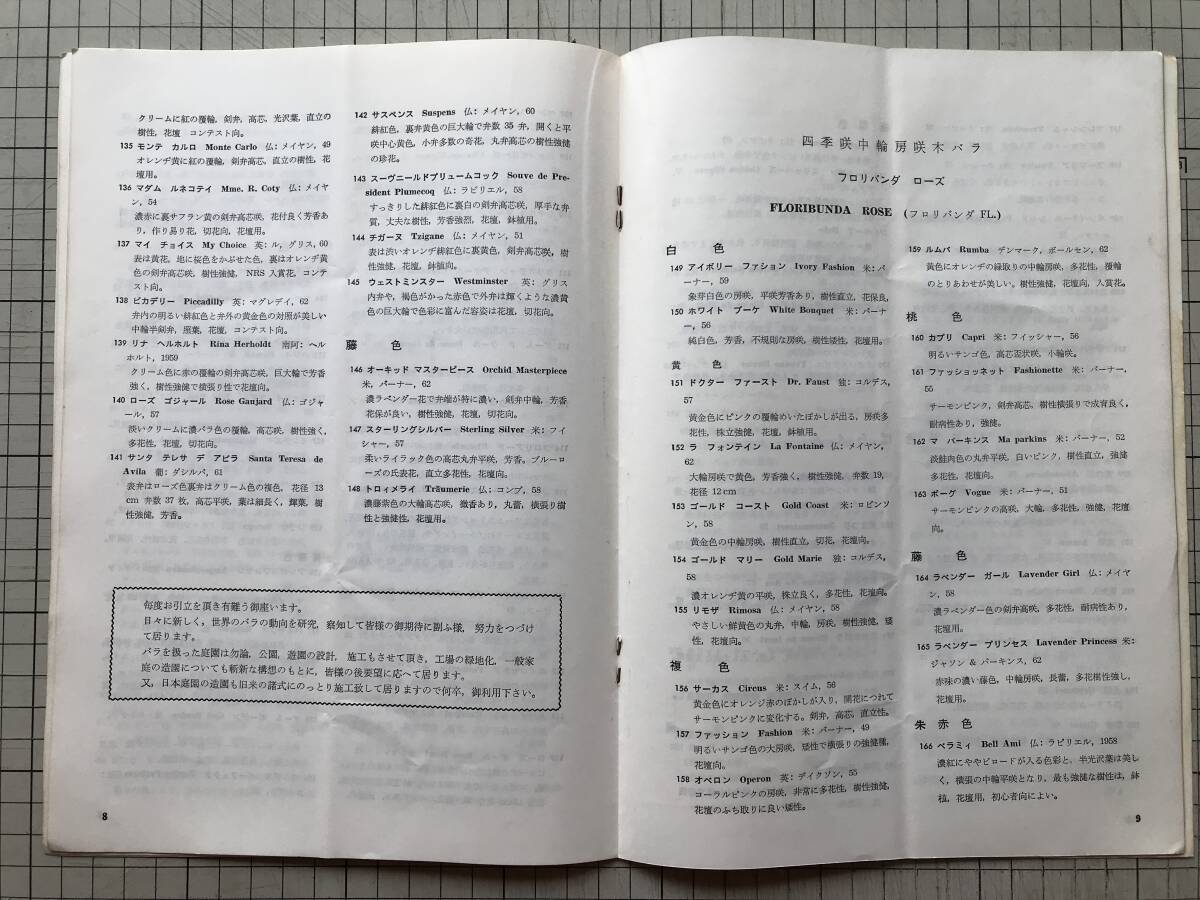 クリームに紅の覆輪, 剣弁, 高芯, 光沢葉, 直立の
樹性, 花壇 コンテスト向。
135 モンテ カルロ Monte Carlo 仏: メイヤン, 49
オレンヂ黄に紅の覆輪, 剣弁高芯, 直立の樹性, 花
壇用。
136 マダム ルネコテイ Mme. R. Coty 仏: メイヤ
ン, 54
濃赤に裏サフラン黄の剣弁高芯咲, 花付良く芳香あ
り, 作り易り花, 切花向, 花壇用。
137 マイ チョイス My Choice 英: ル, グリス, 60
表は黄花, 地に桜色をかぶせた色, 裏はオレンヂ黄
色の剣弁高芯咲, 樹性強健, NRS 入賞花, コンテス
ト向。
138 ピカデリー Piccadilly 英: マグレデイ, 62
弁内の明るい緋紅色と弁外の黄金色の対照が美しい
中輪半剣弁, 照葉, 花壇, コンテスト向。
139 リナ ヘルホルト Rina Herholdt 南阿: ヘル
ホルト, 1959
クリーム色に赤の覆輪の剣弁高芯咲, 巨大輪で芳香
強く, 樹性強健で横張り性で花壇向。
140 ローズ ゴジャール Rose Gaujard 仏: ゴジャ
ール, 57
淡いクリームに濃バラ色の覆輪, 高芯咲, 樹性強く,
多花性, 花壇, 切花向。
141 サンタ テレサ デ アビラ Santa Teresa de
Avila 葡: ダシルバ, 61
表弁はローズ色裏弁はクリーム色の複色, 花径 13
cm 弁数 37 枚, 高芯平咲, 葉は細長く, 輝葉, 樹
性強健, 芳香。
142 サスペンス Suspens 仏: メイヤン, 60
緋紅色, 裏弁黄色の巨大輪で弁数 35 弁, 開くと平
咲中心黄色, 小弁多数の奇花, 丸弁高芯の樹性強健
の珍花。
143 スーヴニールドプリュームコック Souve de Pre-
sident Plumecoq 仏: ラビリエル, 58
すっきりした緋紅色に裏白の剣弁高芯咲, 厚手な弁
質, 丈夫な樹性, 芳香強烈, 花壇, 鉢植用。
144 チガーヌ Tzigane 仏: メイヤン, 51
表は渋いオレンヂ緋紅色に裏黄色, 剣弁高芯咲, 樹
性強健, 花壇, 鉢植向。
145 ウェストミンスター Westminster 英: グリス
内弁や, 褐色がかった赤色で外弁は輝くような濃黄
色の巨大輪で色彩に富んだ容姿は花壇, 切花向。
藤 色
146 オーキッド マスターピース Orchid Masterpiece
米, バーナー, 62
濃ラベンダー花で弁端が特に濃い, 剣弁中輪, 芳香
花保が良い, 樹性強健, 花壇, 切花向。
147 スターリングシルバー Sterling Silver 米: フイ
シャー, 57
柔いライラック色の高芯丸弁平咲, 芳香。ブルーロ
ーズの氏表花, 直立多花性, 花壇向。
148 トロィメライ Träumerie 仏: コンプ, 58
濃藤紫色の大輪高芯咲, 微香あり, 丸蕾, 横張り樹
性と強健性, 花壇用。
毎度お引立を頂き有難う御座います。
日々に新しく, 世界のバラの動向を研究, 察知して皆様の御期待に副ふ様, 努力をつづけ
て居ります。
バラを扱った庭園は勿論, 公園, 遊園の設計, 施工もさせて頂き, 工場の緑地化, 一般家
庭の造園についても斬新な構想のもとに, 皆様の後要望に応へて居ります。
又, 日本庭園の造園も旧来の諸式にのっとり施工致して居りますので何卒, 御利用下さい。
8
四季咲中輪房咲木バラ
フロリバンダ ローズ
FLORIBUNDA ROSE (フロリバンダ FL.)
白 色
149 アイボリー ファション Ivory Fashion 米: バ
ーナー, 59
象芽白色の房咲, 平咲芳香あり, 樹性直立, 花保良,
150 ホワイト ブーケ White Bouquet 米: バーナ
ー, 56
純白色, 芳香, 不規則な房咲, 樹性矮性, 花壇用。
黄 色
151 ドクター ファースト Dr. Faust 独: コルデス,
57
黄金色にピンクの覆輪めいたぼかしが出る, 房咲多
花性, 株立強健, 花壇, 鉢植用。
152 ラ フォンテイン La Fontaine 仏: メイヤン,
62
大輪房咲で黄色, 芳香強く, 樹性強健, 弁数 19,
花径 12 cm
153 ゴールド コースト Gold Coast 米: ロビンソ
ン, 58
黄金色の中輪房咲, 樹性直立, 切花, 花壇向。
154 ゴールド マリー Gold Marie 独: コルデス,
58
濃オレンヂ黄の平咲, 株立良く, 多花性, 花壇向。
155 リモザ Rimosa 仏: メイヤン, 58
やさしい鮮黄色の丸弁, 中輪, 房咲, 樹性強健, 矮
性, 花壇向。
複 色
156 サーカス Circus 米: スイム, 56
黄金色にオレンジ赤のぼかしが入り, 開花につれて
サーモンピンクに変化する。剣弁, 高芯, 直立性。
157 ファッション Fashion 米: バーナー, 49
明るいサンゴ色の大房咲, 矮性で横張りの強健種,
花壇向。
158 オペロン Operon 英: デイクソン, 55
コーラルピンクの房咲, 非常に多花性, 樹性強健,
花壇のふち取りに良い矮性。
159 ルムバ Rumba デンマーク, ポールセン, 62
黄色にオレンヂの縁取りの中輪房咲, 多花性, 覆輪
のとりあわせが美しい。樹性強健, 花壇向, 入賞花。
桃 色
160 カプリ Capri 米: フイッシャー, 56
明るいサンゴ色, 高芯盃状咲, 小輪咲。
161 ファッショッネット Fashionette 米: バーナー,
55
サーモンピンク, 剣弁高芯, 樹性横張りで成育良く,
耐病性あり, 強健。
162 マ パーキンス Ma parkins 米: バーナー, 52
淡鮭肉色の丸弁平咲, 白いピンク, 樹性直立, 強健
多花性, 花壇向。
163 ボーグ Vogue 米: バーナー, 51
サーモンピンクの高咲, 大輪, 多花性, 強健, 花壇
向。
藤 色
164 ラベンダー ガール Lavender Girl 仏: メイヤ
ン, 58
濃ラベンダー色の剣弁高咲, 多花性, 耐病性あり,
花壇用。
165 ラベンダー プリンセス Lavender Princess 米:
ジャソン & パーキンス, 62
赤味の濃い藤色, 中輪房咲, 長蕾, 多花樹性強し,
花壇用。
朱 赤 色
166 ベラミィ Bell Ami 仏: ラビリエル, 1958
濃紅にややビロードが入る色彩と, 半光沢葉は美し
く, 横張の中輪平咲となり, 最も強健な樹性は, 鉢
植, 花壇用, 初心者向によい。
9